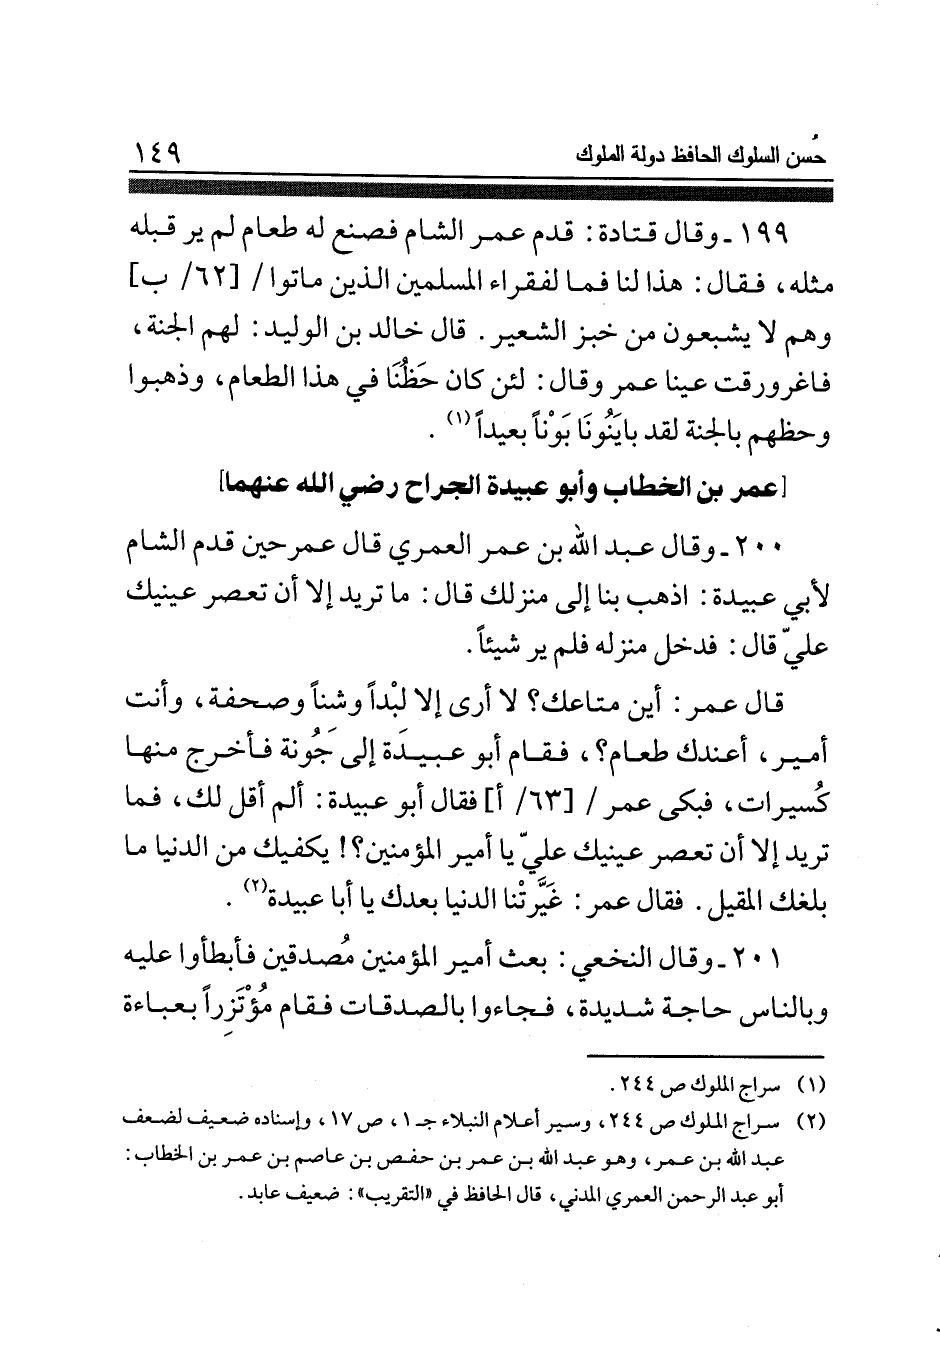 حُسن السلوك الحافظ دولة الملوك ١٤٩
١٩٩ ـ وقال قتادة: قدم عمر الشام فصنع له طعام لم ير قبله
مثله، فقال: هذا لنا فما لفقراء المسلمين الذين ماتوا / [٦٢/ ب]
وهم لا يشبعون من خبز الشعير. قال خالد بن الوليد: لهم الجنة،
فاغرورقت عينا عمر وقال: لئن كان حَظُنَا في هذا الطعام، وذهبوا
وحظهم بالجنة لقد بايَنُونَا بَوْناً بعيداً(١).
[عمر بن الخطاب وأبو عبيدة الجراح رضي الله عنهما]
٢٠٠ ـ وقال عبد الله بن عمر العمري قال عمر حين قدم الشام
لأبي عبيدة: اذهب بنا إلى منزلك قال: ما تريد إلا أن تعصر عينيك
عليّ قال: فدخل منزله فلم ير شيئاً.
قال عمر: أين متاعك؟ لا أرى إلا لبْداً وشناً وصحفة، وأنت
أمير، أعندك طعام؟، فقام أبو عبيدَة إلى جَُونة فأخرج منها
كُسيرات، فبكى عمر / [٦٣/ أ] فقال أبو عبيدة: ألم أقل لك، فما
تريد إلا أن تعصر عينيك عليّ يا أمير المؤمنين؟! يكفيك من الدنيا ما
بلغك المقيل. فقال عمر: غَيَّرتْنا الدنيا بعدك يا أبا عبيدة(٢).
٢٠١ ـ وقال النخعي: بعث أمير المؤمنين مُصدقين فأبطأوا عليه
وبالناس حاجة شديدة، فجاءوا بالصدقات فقام مُؤْتَزِراً بعباءة
(١) سراج الملوك ص ٢٤٤.
(٢) سراج الملوك ص ٢٤٤، وسير أعلام النبلاء جـ ١، ص ١٧، وإسناده ضعيف لضعف
عبد الله بن عمر، وهو عبد الله بن عمر بن حفص بن عاصم بن عمر بن الخطاب:
أبو عبد الرحمن العمري المدني، قال الحافظ في «التقريب»: ضعيف عابد.